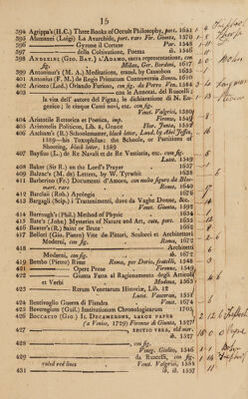 15
394 Agrippa's (H.C.) Three Books of Occult Philosophy, port. 1651
395 Alamanni (Luigi) La Avarchide, port. rare Fir. Giunta, 1570
396 Gyrone il Cortese Par. 1548
397 della Coltivatione, Poema ib. 1546
398 Andreini (Gio. Bat.) L'Adamo, sacra representatione, con
fig. Milan, Ger. Bordoni, 1617
399 Antoninus's (M. A.) Meditations, transl. by Casaubon 1635
401 Antonius (F. M.) de Regis Primatum Controversia Bonon. 1610
402 Ariosto (Lod.) Orlando Furioso, con fig. da Pietro Ven. 1584
403 con le Annotat. del Ruscelli;
la vita dell' autore del Pigna; le dichiarazione di N. Eu-
genico; le cinque Canti novi, etc. con fig.
Venet. Valgrisi, 1580
404 Aristotile Rettorica et Poetica, imp. Firenze, 1549
405 Aristotelis Politicon, Lib. 8, Græce Flor. Junta, 1552
406 Ascham's (R.) Schoolemaster, black letter, Lond. by Abel Jeffes,
1589—his Toxophilus: the Schoole, or Partitions of
Shooting, black letter, 1589
407 Bayfius (L.) de Re Navali et de Re Vestiaria, etc. con fig.
1537
408 Baker (Sir R.) on the Lord's Prayer 1638
409 Balzac's (M. de) Letters, by W. Tyrwhit 1638
411 Barberino (Fr.) Documenti d'Amore, con molte figure da Bloe-
mart. rare Roma, 1640
412 Barclaii (Rob.) Apologia 1676
413 Bargagli (Scip.) i Trattenimenti, dove da Vaghe Donne, &c.
Venet. 1591
414 Barrough's (Phil.) Method of Physic 1634
415 Bate's (John) Mysteries of Nature and Art, cuts, port. 1635
416 Baxter's (R.) Saint or Brute 1662
417 Bellori (Gio. Pietro) Vite de Pittori, Scultori et Architettori
Moderni, con fig. Roma, 1672
418 Architetti
Moderni, con fig. ib. 1672
419 Bembo (Pietro) Rime Roma, per Dorio, fratelli, 1548
421 Opere Prose Firenze, 1549
422 Giunta Fatta al Ragionamento degli Articoli
et Verbi Modena, 1563
423 Rerum Venetarum Historiæ, Lib. 12
Lutet. Vascosan, 1551
424 Bentivoglio Guerra di Fiandra Venet. 1674
425 Beveroginus (Guil.) Institutionum Chronologicarum 1705
426 Boccacio (Gio.) Il Decamerone, large paper
(a Venize, 1729) Firenze di Giunta, 1527
427 editio vera, old mor.
ib. 1527
428 con fig.
Vineg. Giolito, 1546
429 da Ruscelli, con fig.
ruled red lines Vinet. Valgrisi, 1554
431 ib. ib. 1557